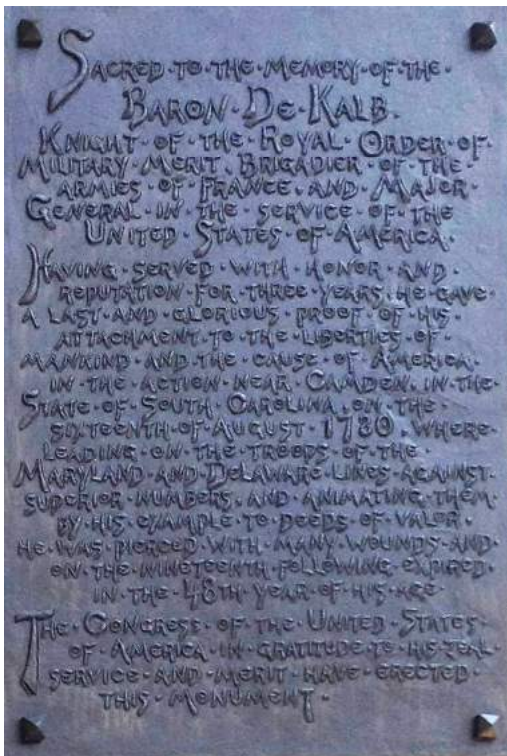 SACRED·TO·THE·MEMORY·OF·THE·
BARON·DE·KALB.
KNIGHT·OF·THE·ROYAL·ORDER·OF·
MILITARY·MERIT, BRIGADIER·OF·THE·
ARMIES·OF·FRANCE, AND·MAJOR·
GENERAL·IN·THE·SERVICE·OF·THE
UNITED·STATES·OF·AMERICA.
HAVING·SERVED·WITH·HONOR·AND·
REPUTATION·FOR·THREE·YEARS, HE·GAVE·
A LAST·AND·GLORIOUS·PROOF·OF·HIS·
ATTACHMENT·TO·THE·LIBERTIES·OF·
MANKIND·AND·THE·CAUSE·OF·AMERICA.
IN·THE·ACTION·NEAR·CAMDEN, IN·THE·
STATE·OF·SOUTH·CAROLINA, ON·THE·
SIXTEENTH·OF·AUGUST·1780, WHERE·
LEADING·ON·THE·TROOPS·OF·THE·
MARYLAND·AND·DELAWARE·LINES·AGAINST·
SUPERIOR·NUMBERS, AND·ANIMATING·THEM·
BY·HIS·EXAMPLE·TO·DEEDS·OF·VALOR.
HE·WAS·PIERCED·WITH·MANY·WOUNDS·AND·
ON·THE·NINETEENTH·FOLLOWING·EXPIRED.
IN·THE·48TH·YEAR·OF·HIS·AGE
THE·CONGRESS·OF·THE·UNITED·STATES·
OF·AMERICA·IN·GRATITUDE·TO·HIS·ZEAL·
SERVICE·AND·MERIT·HAVE·ERECTED·
THIS·MONUMENT·